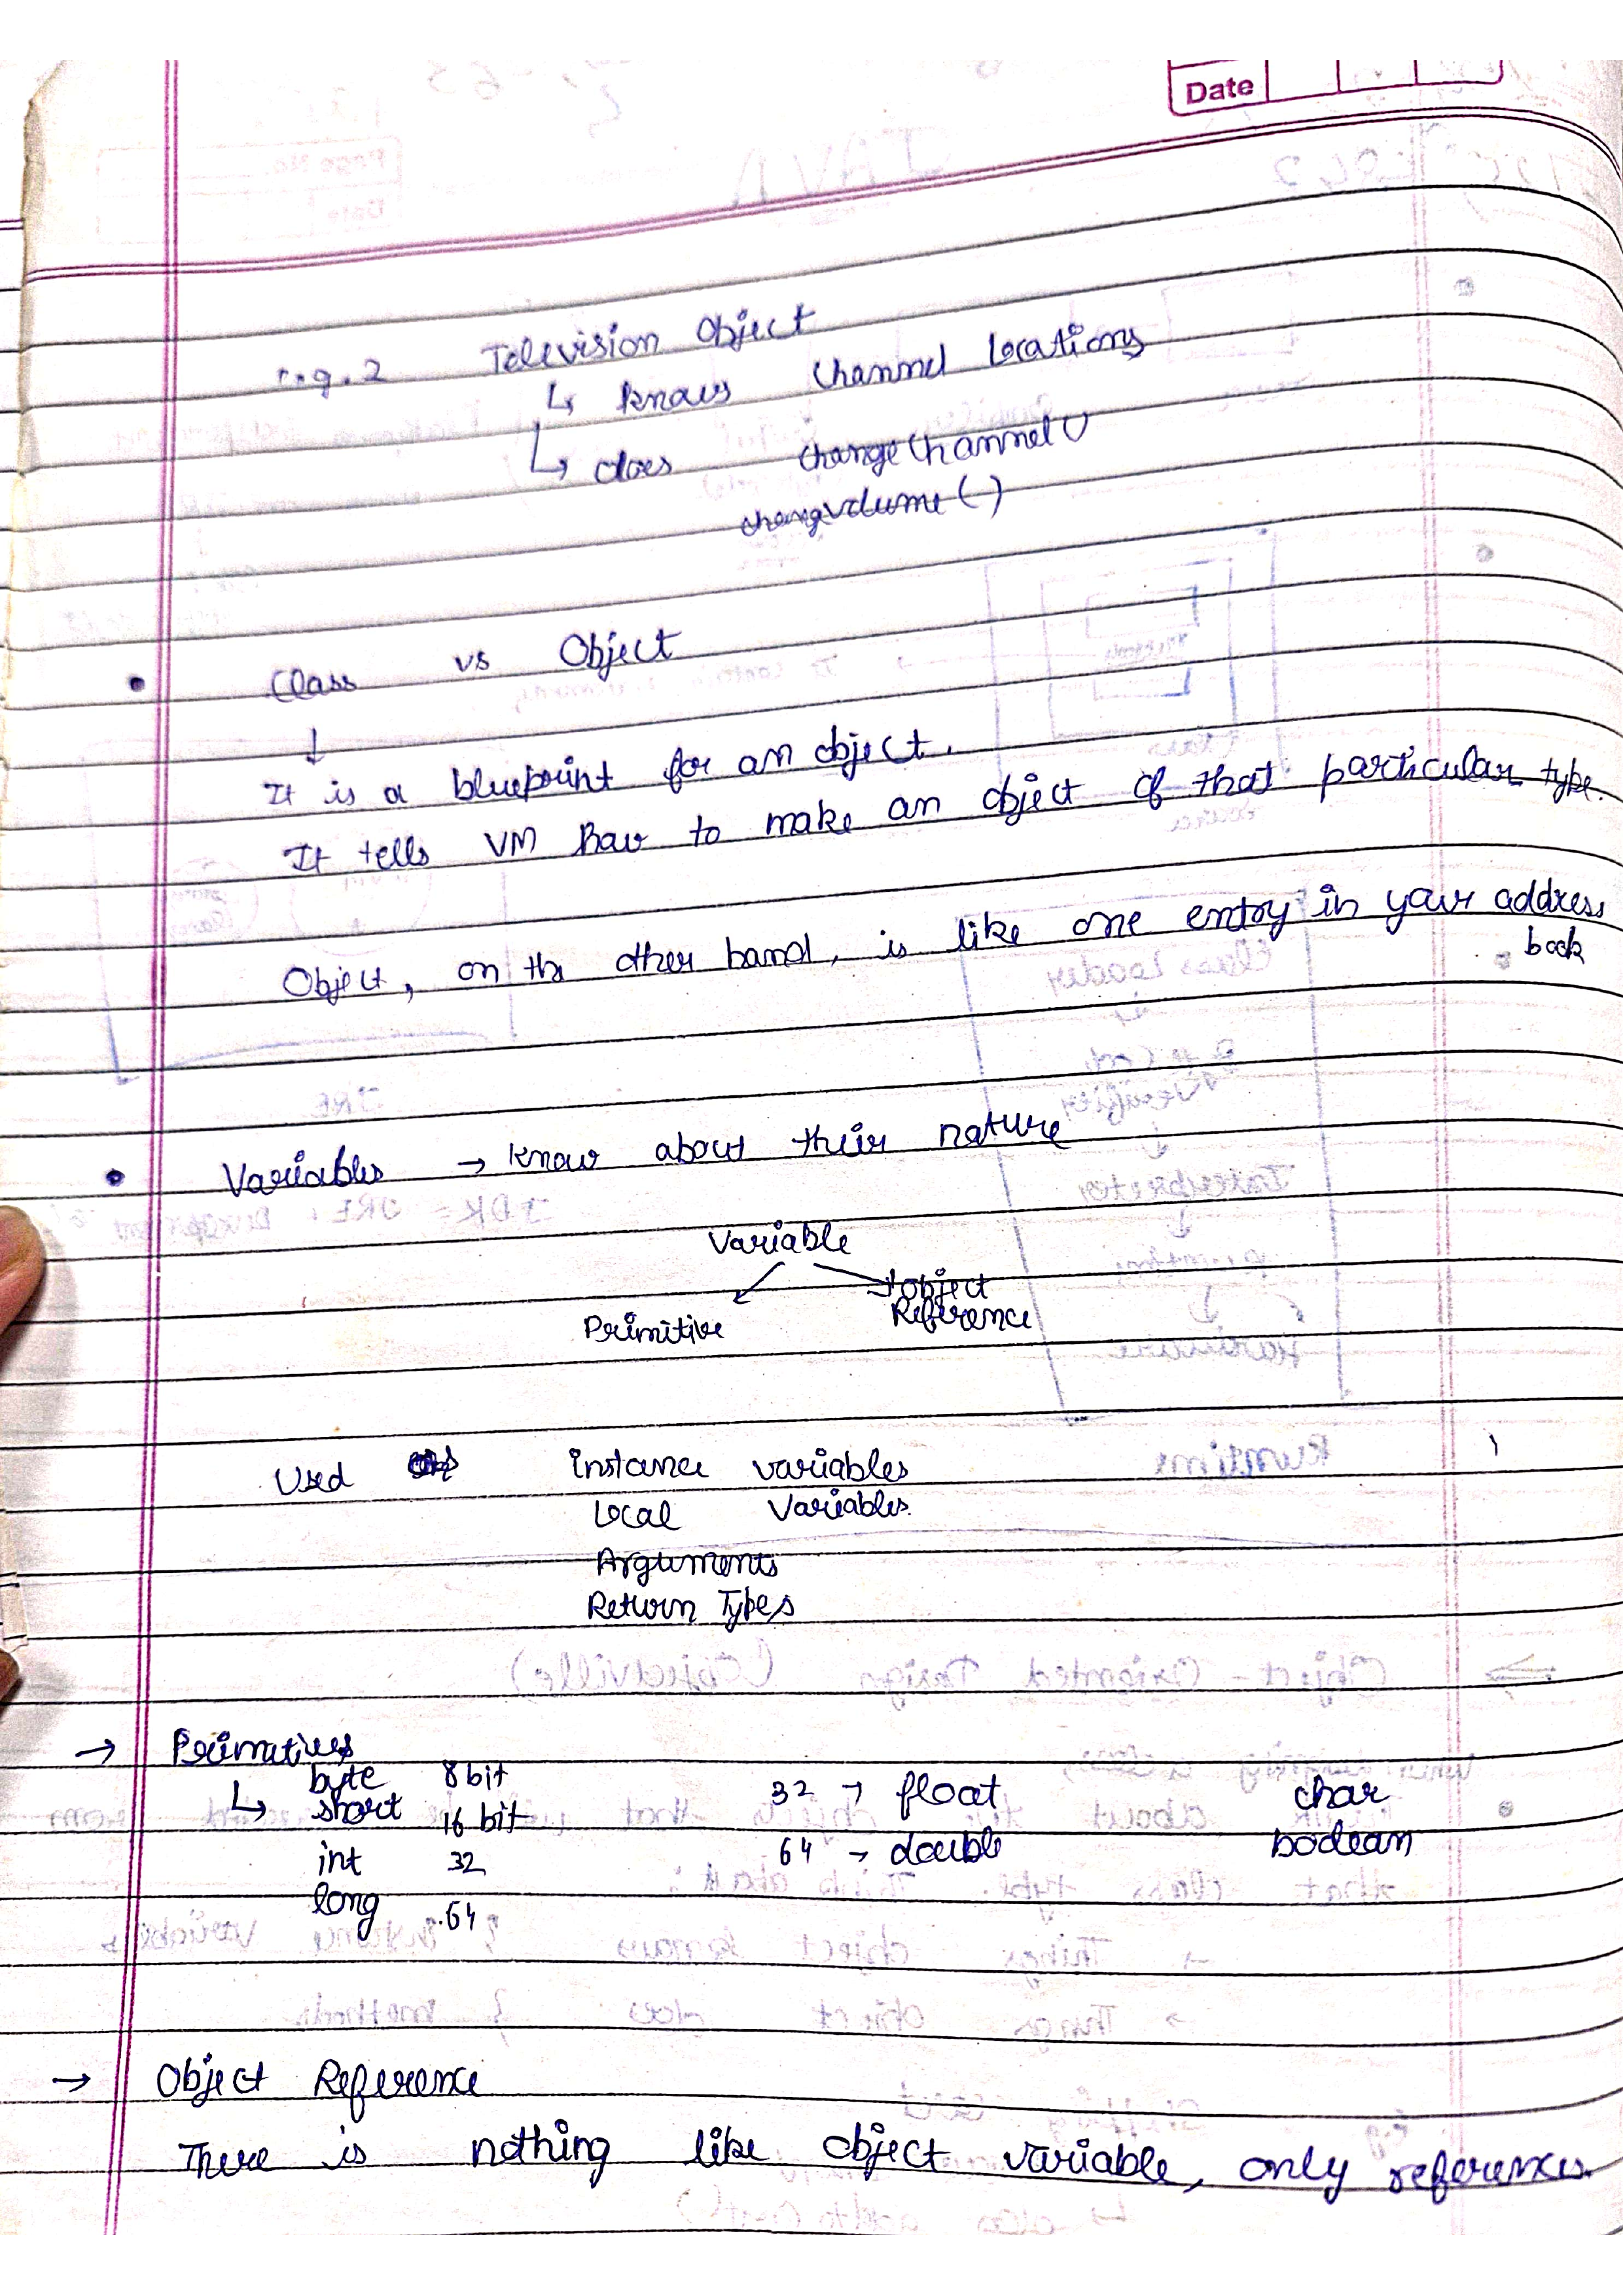 Date
e.g. 2 Television Object
↳ knows Channel Locations
↳ does changeChannel()
changevolume()
• Class vs Object
↓
It is a blueprint for an object.
It tells VM how to make an object of that particular type.
Object, on the other hand, is like one entry in your address
book
• Variables → know about their nature
Variable
Primitive Object
Reference
Used instance variables
Local Variables.
Arguments
Return Types
→ Primatives
↳ byte 8 bit 32 → float char
short 16 bit 64 → double boolean
int 32
long 64
→ Object Reference
There is nothing like object variable, only references.